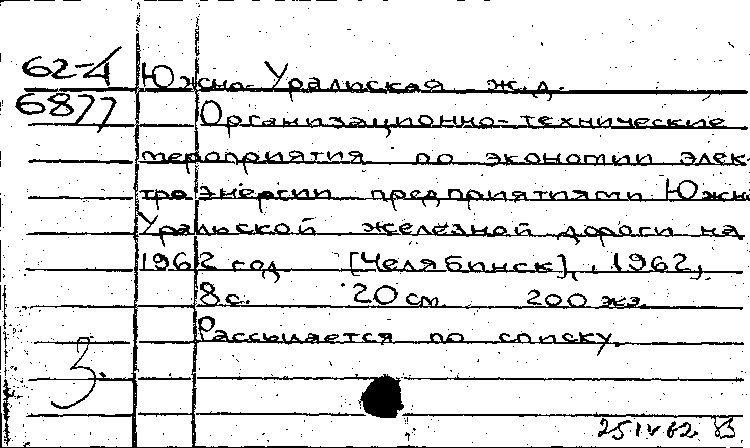 62-4
6877
Южно-Уральская ж.д.
Организационно-технические
мероприятия по экономии элек-
троэнергии предприятиями Южно-
Уральской железной дороги на
1962 год. [Челябинск], 1962,
8 с. 20 см. 200 экз.
Рассылается по списку.
3.
25 IV 62.